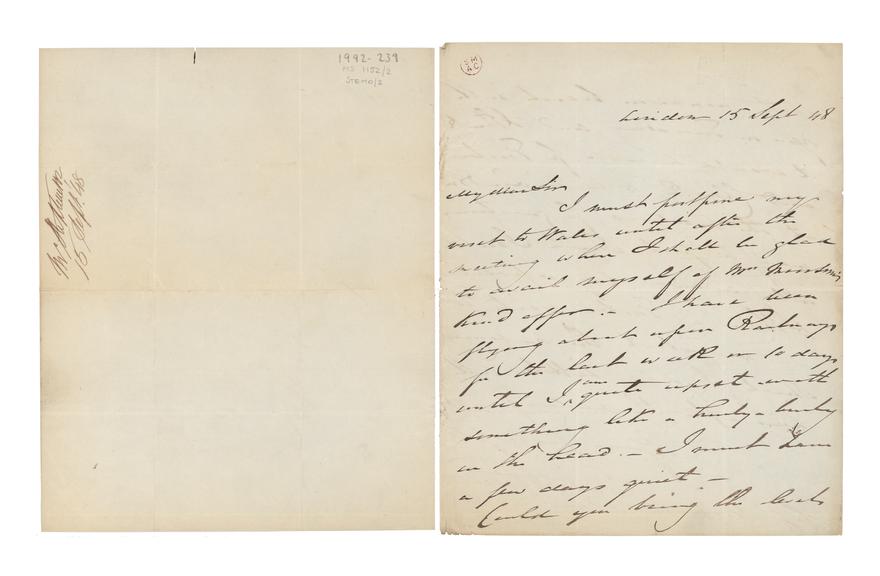 1992-239
MS 1152/2
STEMO/2
15 Sept. 48
London 15 Sept 48
My dear Sir
I must postpone my
visit to Wales until after the
meeting when I shall be glad
to avail myself of Mrs
kind offer. - I have been
flying about upon Railways
for the last week or 10 days
until I am quite upset with
something like a hurly-burly
in the head. - I must have
a few days quiet. -
Could you bring the levels